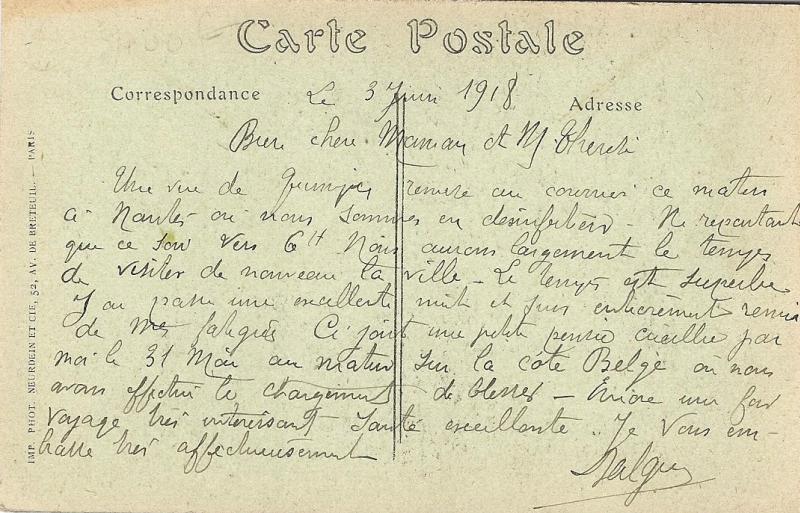 Carte Postale
Correspondance
Adresse
Le 3 Juin 1918
Bien chère Maman et M. Thérèse
Une vue de remise au courrier ce matin
à Nantes où nous sommes en désinfection - Ne repartant
que ce soir vers 6H Nous aurons largement le temps
de visiter de nouveau la ville - Le temps est superbe
J'ai passé une excellente nuit et suis entièrement remis
de mes fatigues Ci joint une petite pensée cueillie par
moi le 31 Mai au matin sur la côte Belge où nous
avons effectué le chargement de blessés - Encore une fois
voyage très intéressant Santé excellente. Je vous em-
brasse très affectueusement
IMP. PHOT. NEURDEIN ET CIE, 52, AV. DE BRETEUIL. - PARIS